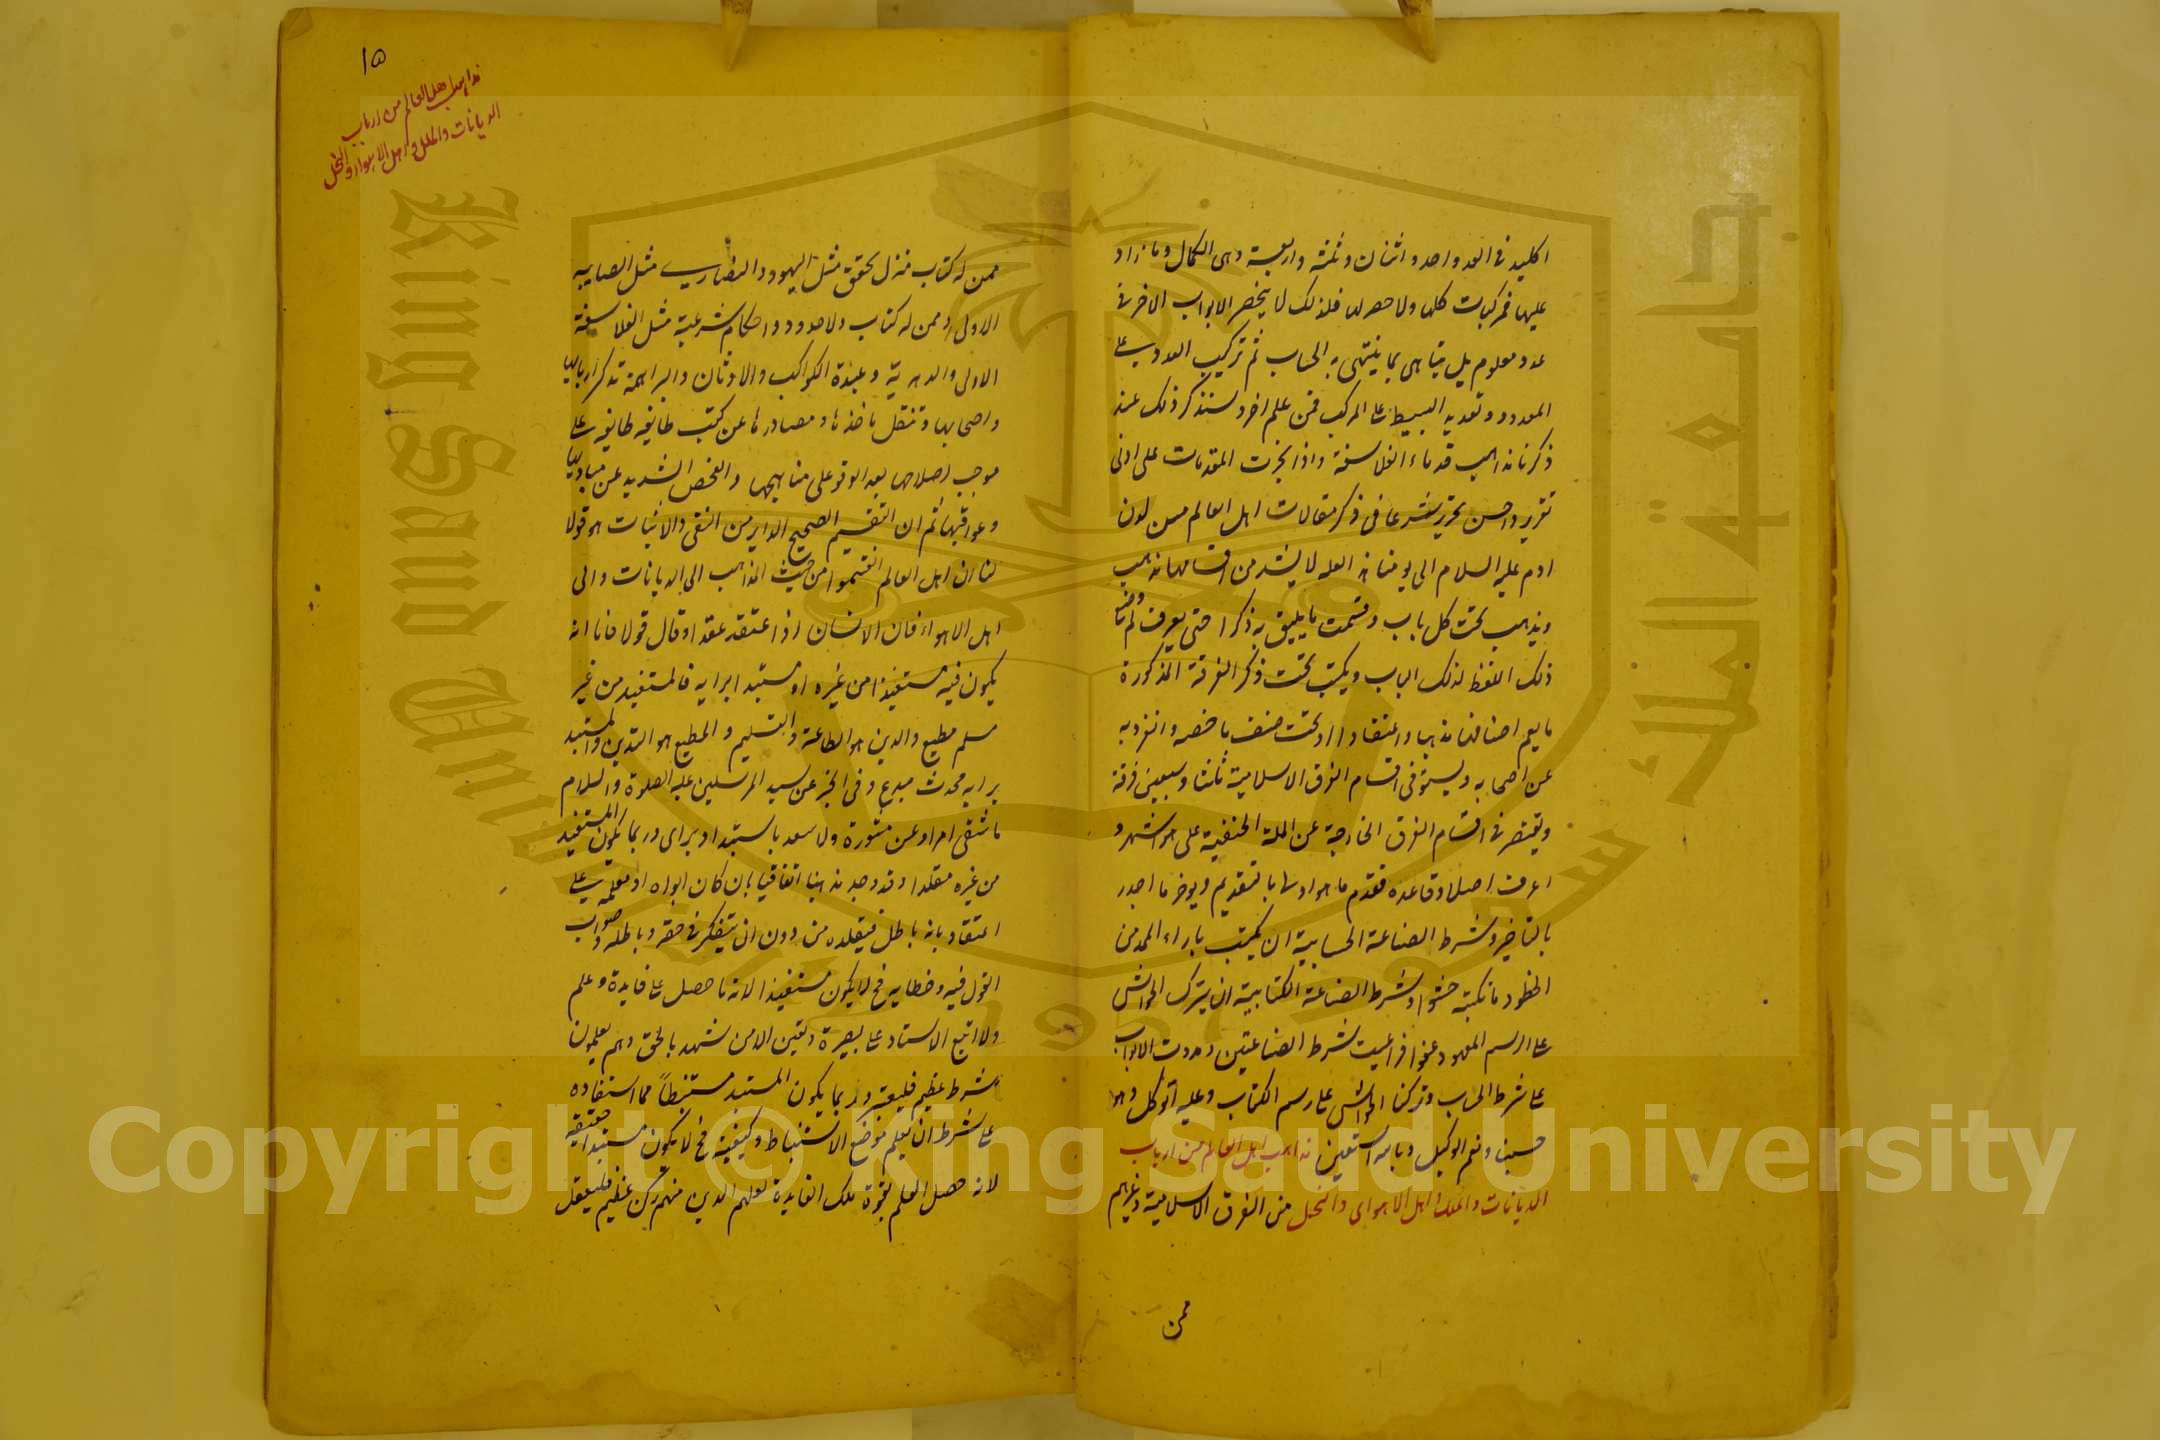 اكليد فى العدد واحد واثنان وثلثة واربعة وهى الكمال وما زاد
عليها فمركبات كلها ولا حصر لها فلذلك لا ينحصر الابواب الاخر فى
عدد معلوم بل يتناهى بما ينتهى به الحساب ثم تركيب العدد على
المعدود وتعديه البسيط على المركب فمن علم اخر وسنذكر ذلك عند
ذكرنا مذاهب قدماء الفلاسفة واذا نجزت المقدمات على اوفى
تقرير واحسن تحرير شرعنا فى ذكر مقالات اهل العالم من لدن
ادم عليه السلام الى يومنا هذا لعله لا يشذ من اقسامها مذهب
ويذهب تحت كل باب وقسمت ما يليق به ذكرا حتى يعرف لم وضع
ذلك اللفظ لذلك الباب ويكتب تحت ذكر الفرقة المذكورة
ما يعم اصنافها مذهبا واعتقادا وتحت صنف ما خصه وانفرد به
عن اصحابه ويستوفى اقسام الفرق الاسلامية ثلثا وسبعين فرقة
ويقتصر فى اقسام الفرق الخارجة عن الملة الحنفية على هو اشهر و
اعرف اصلا وقاعدة فقدم ما هو اولى بالتقديم ويوخر ما اجدر
بالتاخير وشرط الصناعة الحسابية ان يكتب بازاء الممدود من
الخطوط ما يكتب حشوا وشرط الصناعة الكتابية ان يترك الحواشى
على الرسم المعهود عفوا فراعيت شرط الصناعتين ومددت الابواب
على شرط الحساب وتركنا الحواشى على رسم الكتاب وعليه اتوكل وهو
حسبنا ونعم الوكيل وبالله استعين مذاهب اهل العالم من ارباب
الديانات والملل واهل الاهواى والنحل من الفرق الاسلامية وغيرهم
ممن
١٥
مذاهب اهل العالم من ارباب
الديانات والملل واهل الاهواء والنحل
ممن له كتاب منزل محقق مثل اليهود والنصارى مثل الصابيه
الاولى وممن له كتاب ولا حدود واحكام شرعية مثل الفلاسفة
الاولى والدهرية وعبدة الكواكب والاوثان والبراهمة تذكر اربابها
واصحابها وتنقل ماخذها ومصادرها عن كتب طائفه طائفه على
موجب اصلاحها بعد الوقوف على مناهجها والفحص الشديد عن مباديها
وعواقبها ثم ان التقسيم الصحيح الداير من النفى والاثبات هو قولا
لنا ان اهل العالم انقسموا من حيث المذاهب الى الديانات والى
اهل الاهواء فان الانسان اذا اعتقد عقدا وقال قولا فاما انه
يكون فيه مستفيدا من غيره او مستبدا برايه فالمستفيد من غير
مسلم مطيع والدين هو الطاعة والتسليم والمطيع هو المتدين والمستبد
برايه محدث مبدع وفى الخبر عن سيد المرسلين عليه الصلوة والسلام
ما شقى امراو عن مشورة ولا سعد باستبداد براى وربما يكون المستفيد
من غيره مقلدا وقد وجد مذهبا اتفاقيا بان كان ابواه او معلمه على
اعتقاد بانه باطل فيقلده من دون ان يتفكر فى حقه وباطله وصواب
القول فيه وخطايه فح لا يكون مستفيدا لانه ما حصل على فايدة وعلم
ولا اتبع الاستاد على بصيرة ويقين الا من شهد بالحق وهم يعلمون
شرط عظيم فليعتبر وربما يكون المستبد مستنبطاً مما استفاده
على شرط ان يعلم موضع الاستنباط وكيفيته فح لا يكون مستبدا حقيقة
لانه حصل العلم بقوة تلك الفايدة لعلهم الدين منهم ركن عظيم فليعقل
King Saud University
جامعة الملك سعود
Copyright © King Saud University